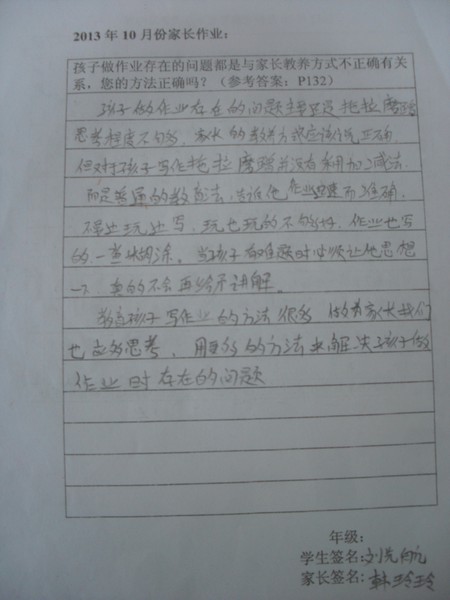 2013 年 10 月份家长作业：
孩子做作业存在的问题都是与家长教养方式不正确有关
系，您的方法正确吗？（参考答案：P132）
孩子做作业存在的问题主要是拖拉磨蹭
思考程度不够，家长的教养方式应该说正确
但对于孩子写作拖拉磨蹭并没有采用加减法
而是普通的教育法，告诉他作业要速而准确
不要边玩边写，玩也玩的不够好，作业也写
的一塌糊涂。当孩子有难题时必须让他思想
一下，真的不会再给予讲解。
教孩子写作业的方法很多 做为家长我们
也应多思考，用更多的方法来解决孩子做
作业时存在的问题
年级：
学生签名：刘
家长签名：韩玲玲